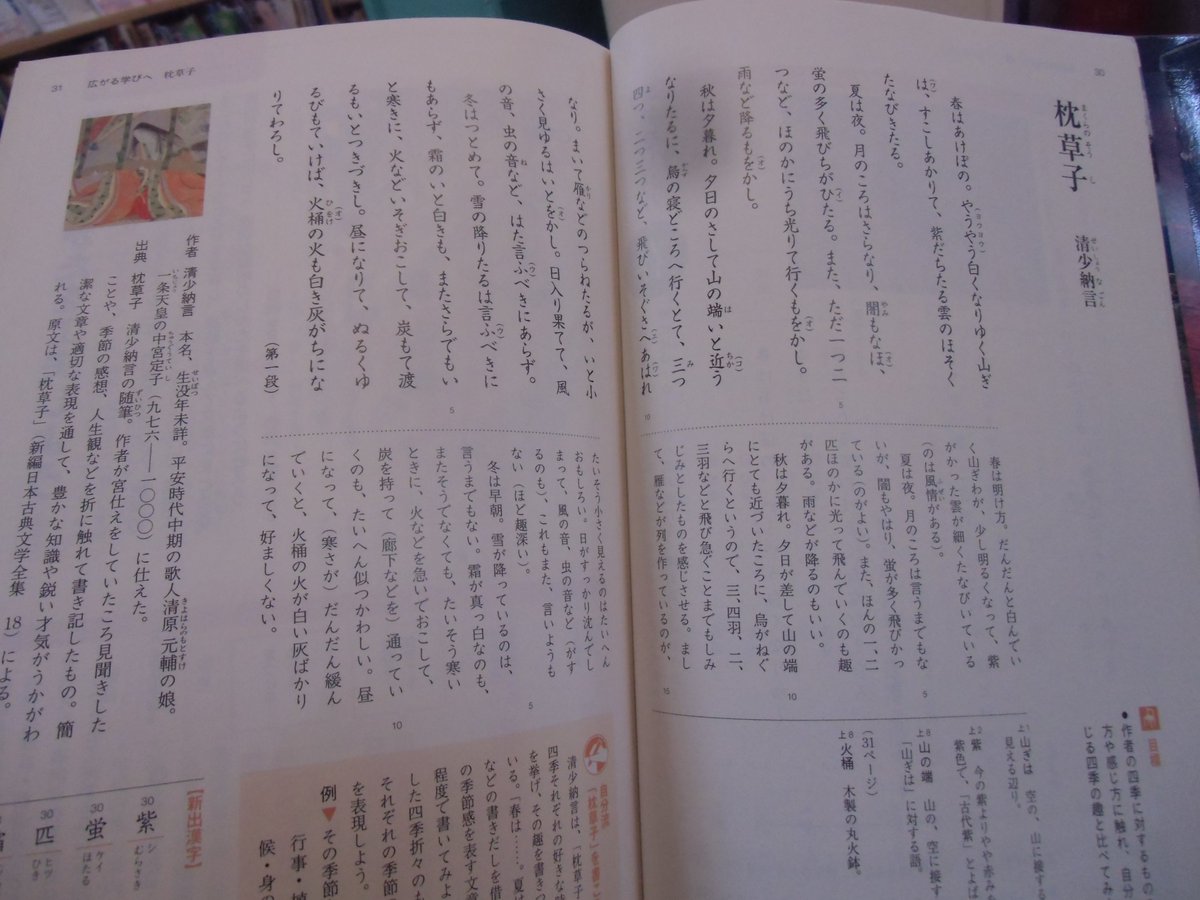 30
枕草子
清少納言
春はあけぼの。やうやう白くなりゆく山ぎ
は、すこしあかりて、紫だちたる雲のほそく
たなびきたる。
夏は夜。月のころはさらなり、闇もなほ、
蛍の多く飛びちがひたる。また、ただ一つ二
つなど、ほのかにうち光りて行くもをかし。
雨など降るもをかし。
秋は夕暮れ。夕日のさして山の端いと近う
なりたるに、烏の寝どころへ行くとて、三つ
四つ、二つ三つなど、飛びいそぐさへあはれ
春は明け方。だんだんと白んでい
く山ぎわが、少し明るくなって、紫
がかった雲が細くたなびいている
(のは風情がある)。
夏は夜。月のころは言うまでもな
いが、闇もやはり、蛍が多く飛びかっ
ている(のがよい)。また、ほんの一、二
匹ほのかに光って飛んでいくのも趣
がある。雨などが降るのもいい。
秋は夕暮れ。夕日が差して山の端
にとても近づいたころに、烏がねぐ
らへ行くというので、三、四羽、二、
三羽などと飛び急ぐことまでもしみ
じみとしたものを感じさせる。まし
て、雁などが列を作っているのが、
目標
作者の四季に対するもの
方や感じ方に触れ、自分
じる四季の趣と比べてみ
上1 山ぎは 空の、山に接する
見える辺り。
上2 紫 今の紫よりやや赤み
紫色で、「古代紫」とよば
上8 山の端 山の、空に接す
「山ぎは」に対する語。
(31ページ)
上8 火桶 木製の丸火鉢。
31
広がる学びへ 枕草子
なり。まいて雁などのつらねたるが、いと小
さく見ゆるはいとをかし。日入り果てて、風
の音、虫の音など、はた言ふべきにあらず。
冬はつとめて。雪の降りたるは言ふべきに
もあらず、霜のいと白きも、またさらでもい
と寒きに、火などいそぎおこして、炭もて渡
るもいとつきづきし。昼になりて、ぬるくゆ
るびもていけば、火桶の火も白き灰がちにな
りてわろし。
(第一段)
たいそう小さく見えるのはたいへん
おもしろい。日がすっかり沈んでし
まって、風の音、虫の音など(がす
るのも)、これもまた、言いようも
ない(ほど趣深い)。
冬は早朝。雪が降っているのは、
言うまでもない。霜が真っ白なのも、
またそうでなくても、たいそう寒い
ときに、火などを急いでおこして、
炭を持って(廊下などを)通ってい
くのも、たいへん似つかわしい。昼
になって、(寒さが)だんだん緩ん
でいくと、火桶の火が白い灰ばかり
になって、好ましくない。
作者 清少納言 本名、生没年未詳。平安時代中期の歌人清原元輔の娘。
一条天皇の中宮定子(九七六——一〇〇〇)に仕えた。
出典 枕草子 清少納言の随筆。作者が宮仕えをしていたころ見聞きした
ことや、季節の感想、人生観などを折に触れて書き記したもの。簡
潔な文章や適切な表現を通して、豊かな知識や鋭い才気がうかがわ
れる。原文は、「枕草子」(新編日本古典文学全集 18)による。
自分流
「枕草子」を書こ
清少納言は、「枕草子
四季それぞれの好きな
を挙げ、その趣を書き
いる。「春は……。夏は
などの書きだしを借
の季節感を表す文章
程度で書いてみよ
した四季折々のも
それぞれの季節
を表現しよう。
例▼その季節
行事・
候・身の
【新出漢字】
30 紫 シ むらさき
30 蛍 ケイ ほたる
30 匹 ヒツ ひき